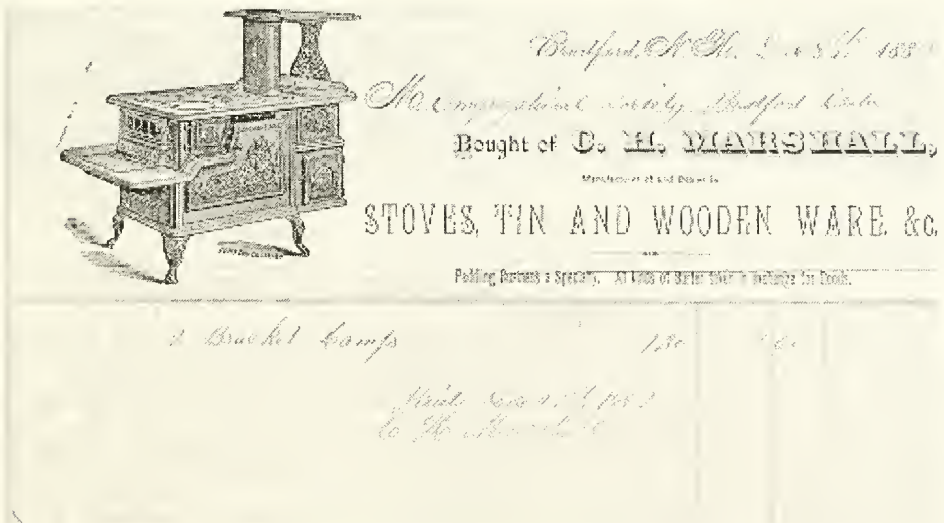 Bradford, N. H. Dec 188
M Congregational Society Bradford Center
Bought of C. H. MARSHALL,
Manufacturer of and Dealer in
STOVES, TIN AND WOODEN WARE &c.
Peddling Business a Specialty. All kinds of Barter taken in exchange for Goods.
2 Bracket Lamps 1.50
C H Marshall